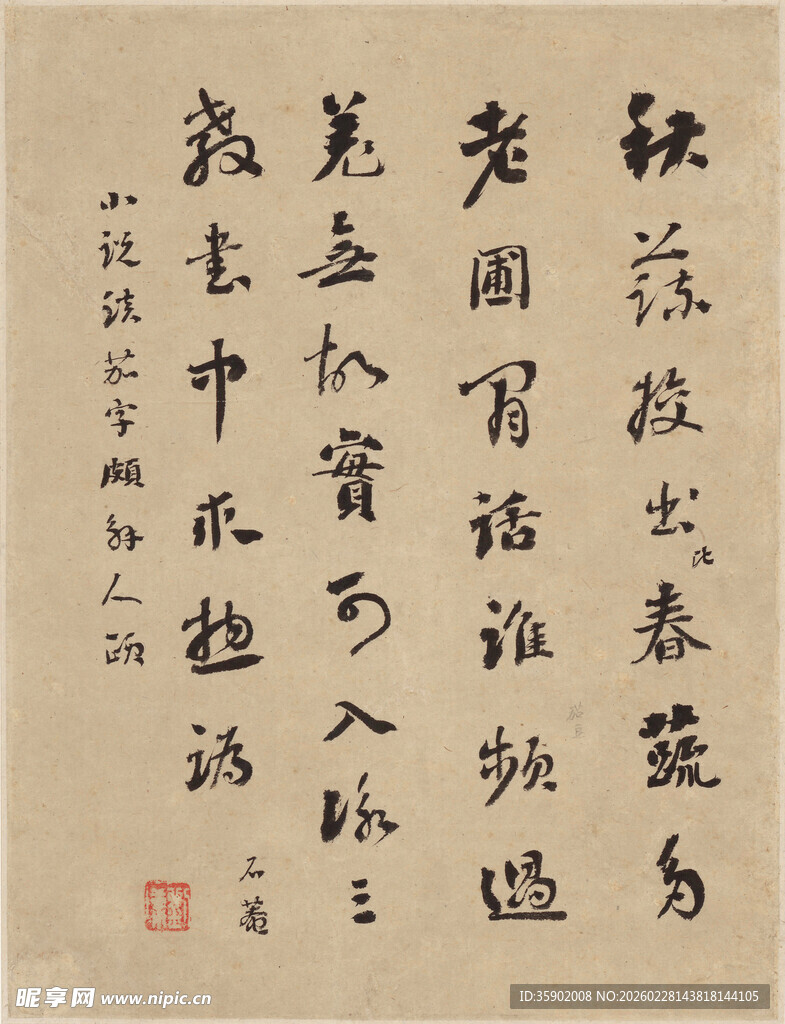 秋蔬挍出春蔬多
比
老圃閒話誰頻過
羌無故實可入詠三
教書中求揔譌
小說談茄字頗解人頤
石菴
昵享网 www.nipic.cn
ID:35902008 NO:20260228143818144105